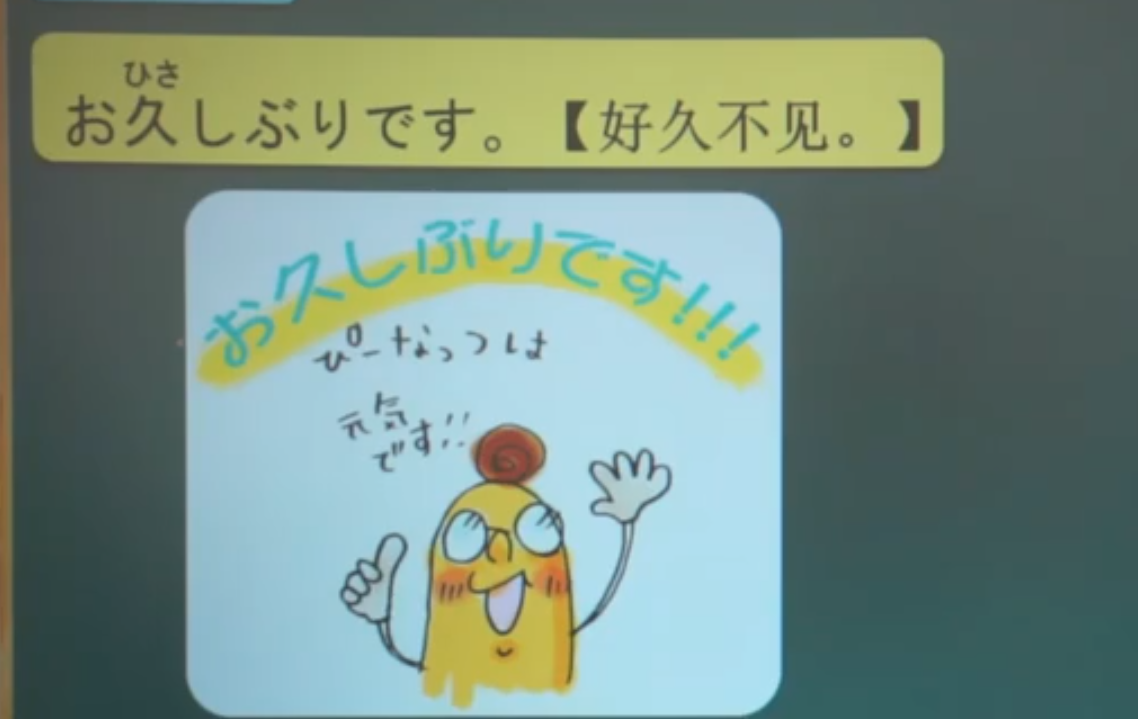 ひさ
お久しぶりです。【好久不见。】
お久しぶりです!!!
ぴーなっつは
元気
です!!